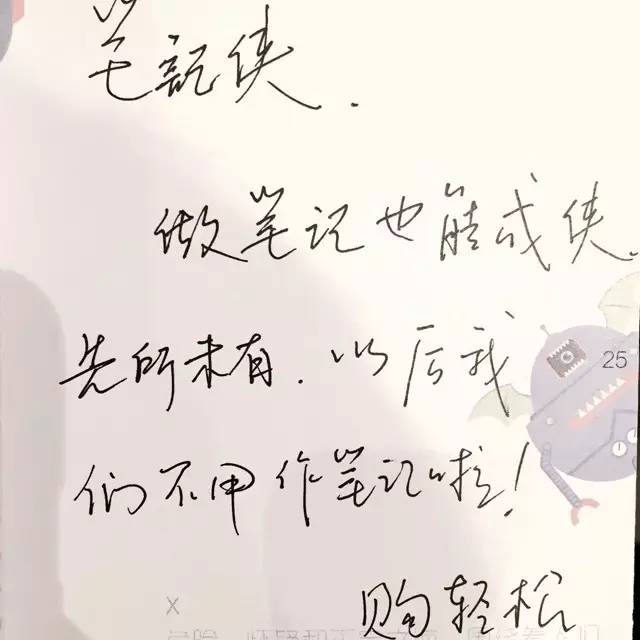 笔記侠.
做笔记也能成侠.
先所未有.以后我
25
们不用作笔记啦!
购轻松
x